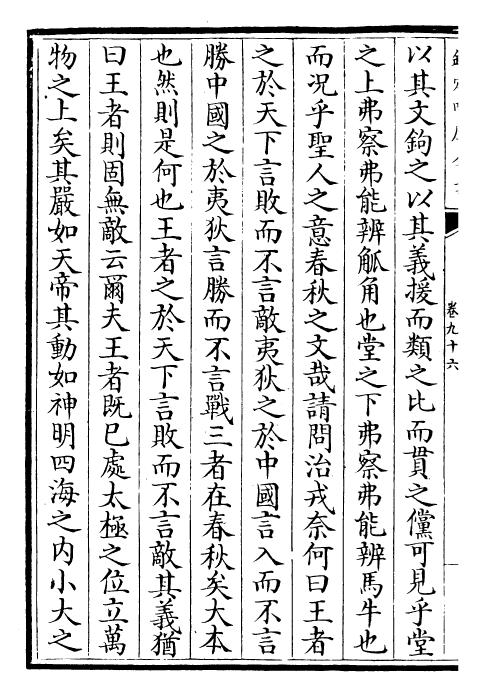 卷九十六
以其文鉤之以其義援而類之比而貫之儻可見乎堂
之上弗察弗能辨觚角也堂之下弗察弗能辨馬牛也
而况乎聖人之意春秋之文哉請問治戎奈何曰王者
之於天下言敗而不言敵夷狄之於中國言入而不言
勝中國之於夷狄言勝而不言戰三者在春秋矣大本
也然則是何也王者之於天下言敗而不言敵其義猶
曰王者則固無敵云爾夫王者既已處太極之位立萬
物之上矣其嚴如天帝其動如神明四海之内小大之